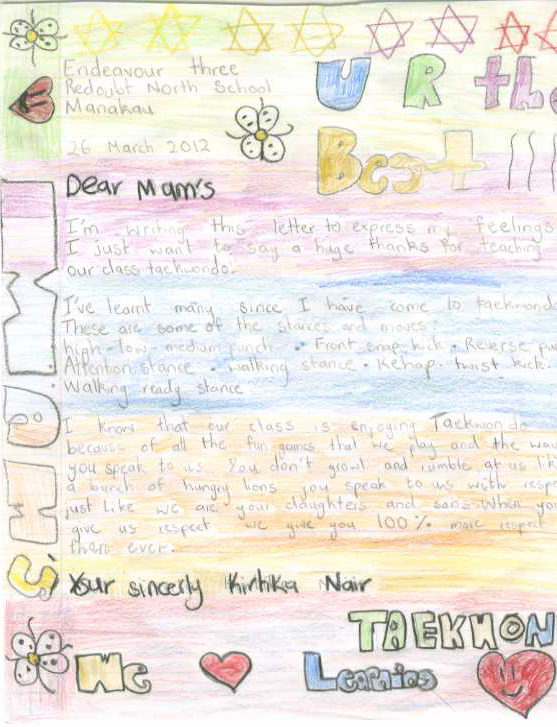 Endeavour three
Redoubt North School
Manakau
26 March 2012
U R the
Best !!!
Dear Mam's
I'm writing this letter to express my feelings
I just want to say a huge thanks for teaching
our class taekwondo.
I've learnt many since I have come to taekwond
These are some of the stances and moves:
high-low-medium punch • Front snap kick • Reverse pu
Attention stance • walking stance • Kehap twist kick.
Walking ready stance
I know that our class is enjoying Taekwondo
because of all the fun games that we play and the wa
you speak to us. You don't growl and rumble at us li
a bunch of hungry lions you speak to us with respe
just like we are your daughters and sons. When you
give us respect we give you 100% more respect
then ever.
Your sincerly Kirtika Nair
TAEKWON
We Learning